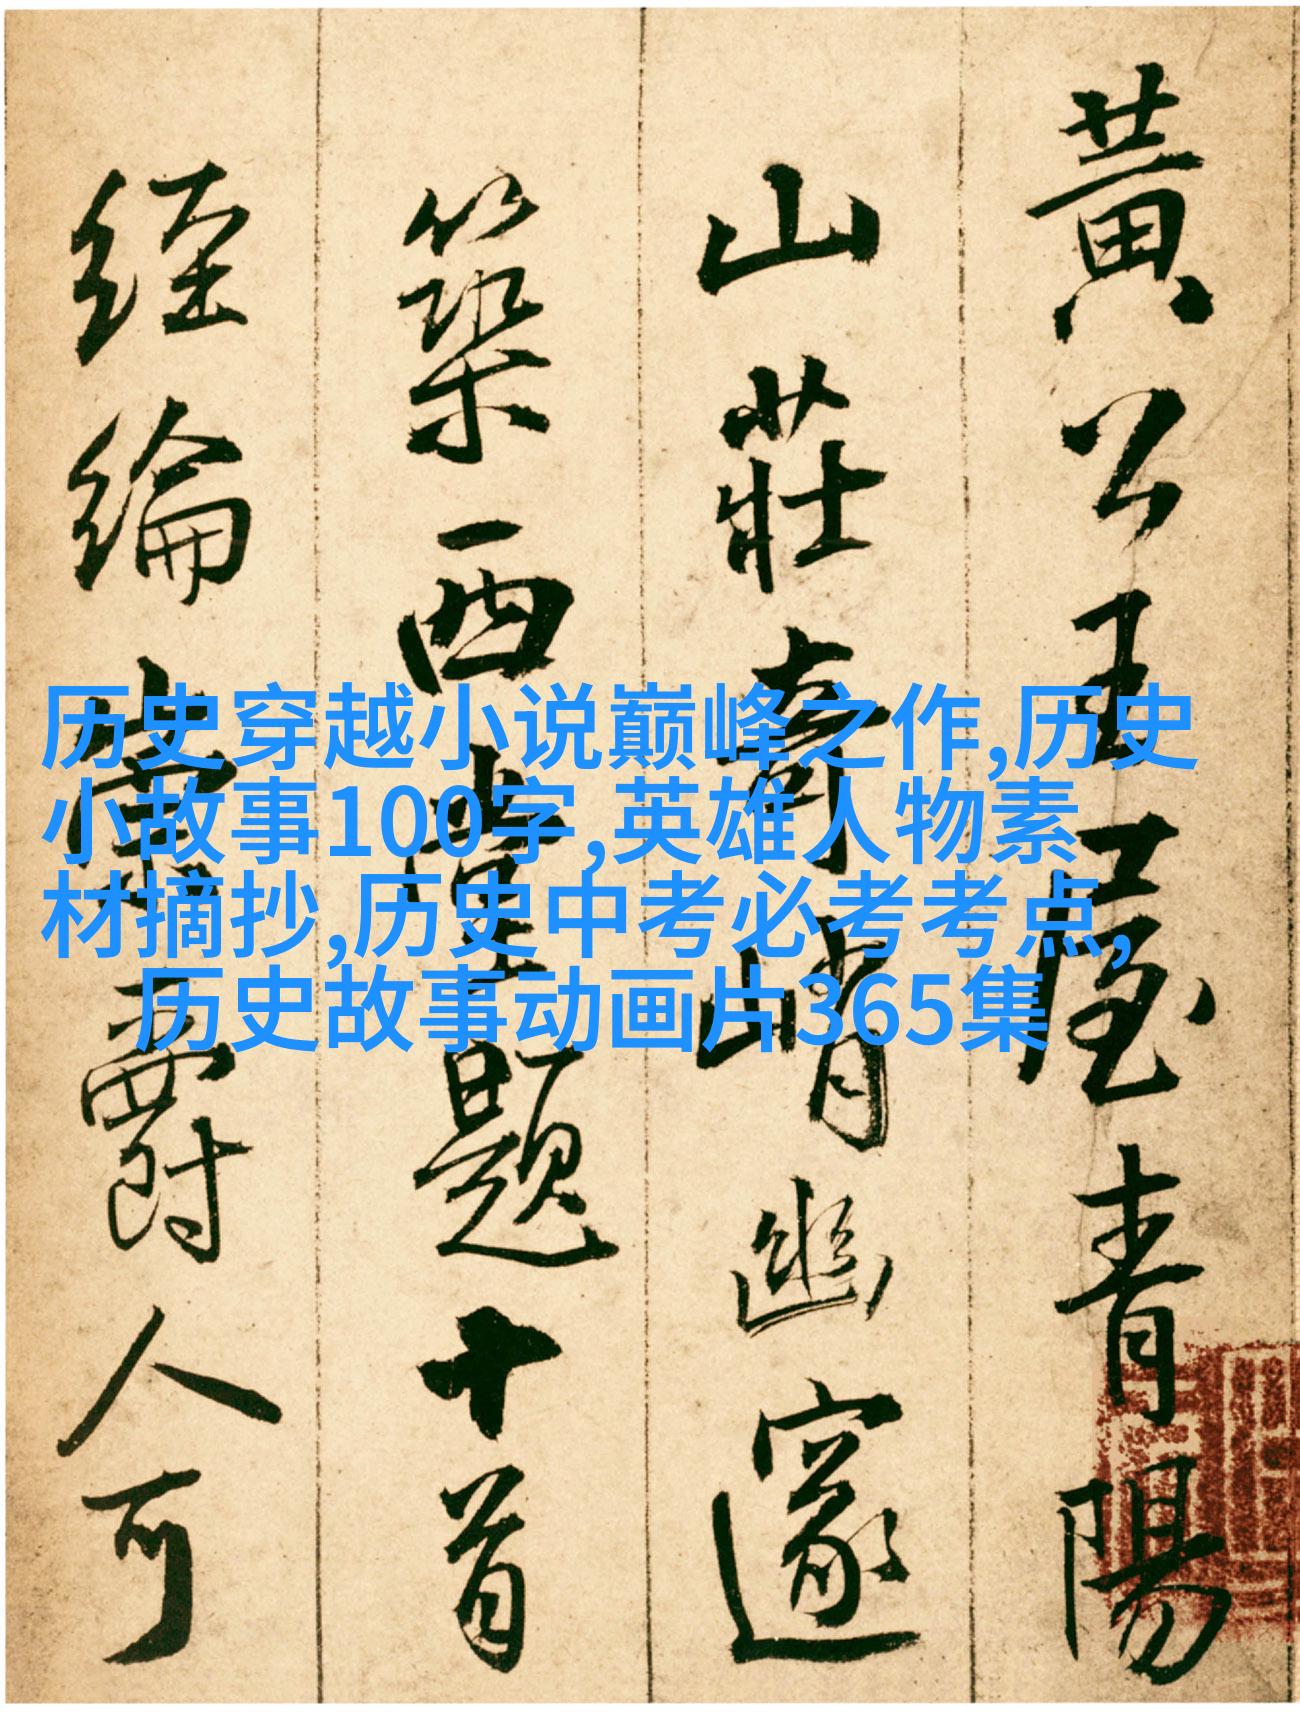 黃公王屋青陽
山莊奇峭幽邃
築西題十首
經綸爵人可
历史穿越小说巅峰之作,历史
小故事100字,英雄人物素
材摘抄,历史中考必考考点,
历史故事动画片365集